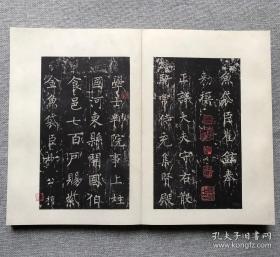 魚袋臣崔鐸奉
勅撰
正議大夫守右散
騎常侍充集賢殿
學士判院事上柱
國河東縣開國伯
食邑七百戶賜紫
金魚袋臣柳公權